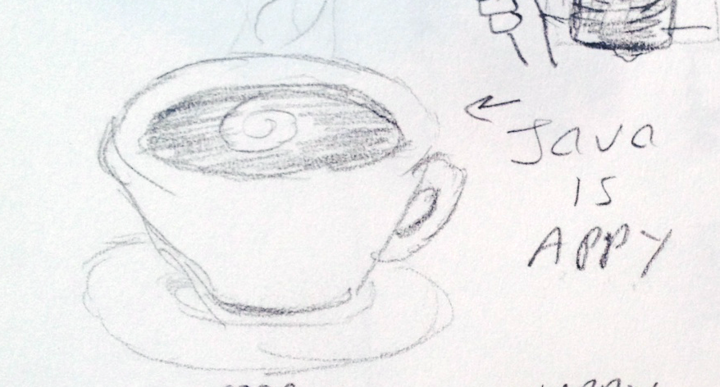 Java
IS
APPY